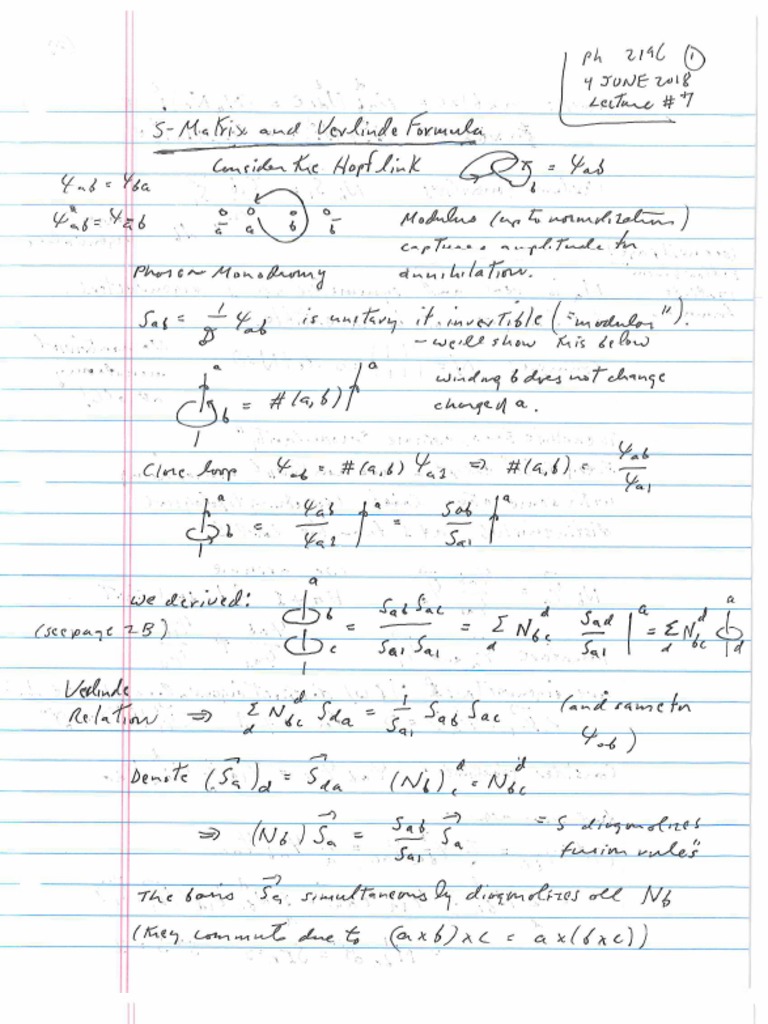 Ph 219C ①
4 JUNE 2018
Lecture # 7
S-Matrix and Verlinde Formula
Consider the Hopf link = ψab
b
ψab = ψba
ψ*ab = ψāb
ā a b b̄
Modulus (up to normalization)
captures amplitude for
annihilation.
Phase ~ Monodromy
Sab = 1/𝒟 ψab is unitary if invertible ("modular").
- we'll show this below
a b = #(a,b) a
winding b does not change
charge of a.
Close loop ψab = #(a,b) ψa1 ⇒ #(a,b) = ψab/ψa1
a b = ψab/ψa1 a = Sab/Sa1 a
we derived:
(see page 2B)
a b c = Sab Sac / Sa1 Sa1 = Σd Nbc^d Sad/Sa1 a = Σd Nbc^d a d
Verlinde
Relation ⇒ Σd Nbc^d Sda = 1/Sa1 Sab Sac (and same for
ψab)
Denote (S⃗a)d = S⃗da (Nb)c^d = Nbc^d
⇒ (Nb) S⃗a = Sab/Sa1 S⃗a = S diagonalizes
fusion rules"
The basis S⃗a simultaneously diagonalizes all Nb
(they commute due to (a×b)×c = a×(b×c))